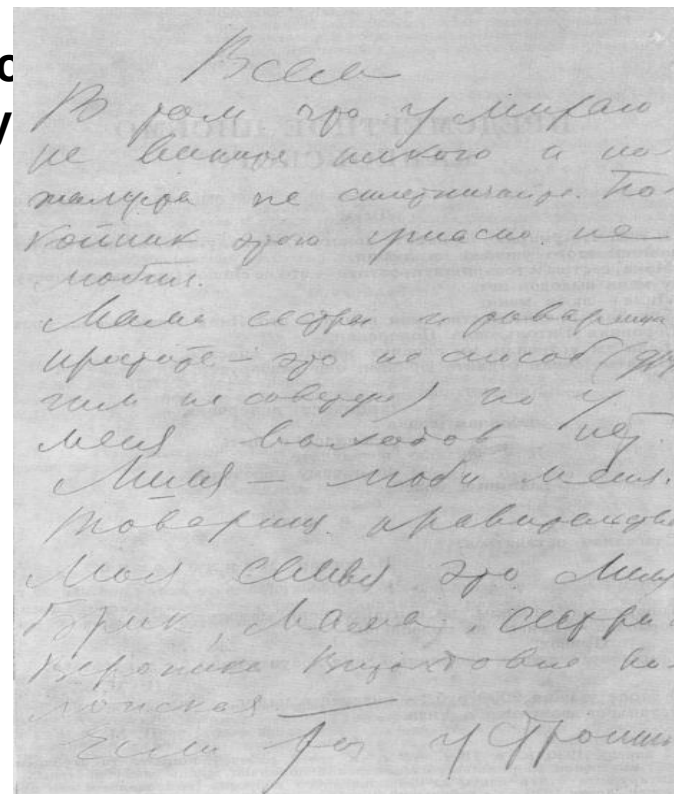 с
у
Всем
В том что умираю
не вините никого и по
жалуйста не сплетничайте. По
койник этого ужасно не
любил.
Мама сестры и товарищи
простите – это не способ (дру
гим не советую) но у
меня выходов нет.
Лиля – люби меня.
Товарищ правительство
моя семья это Лиля
Брик, мама, сестры и
Вероника Витольдовна По
лонская
Если ты устроишь